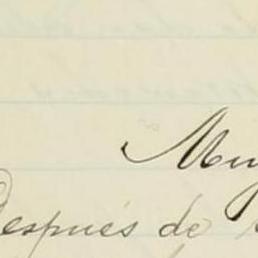 Muy
Después de